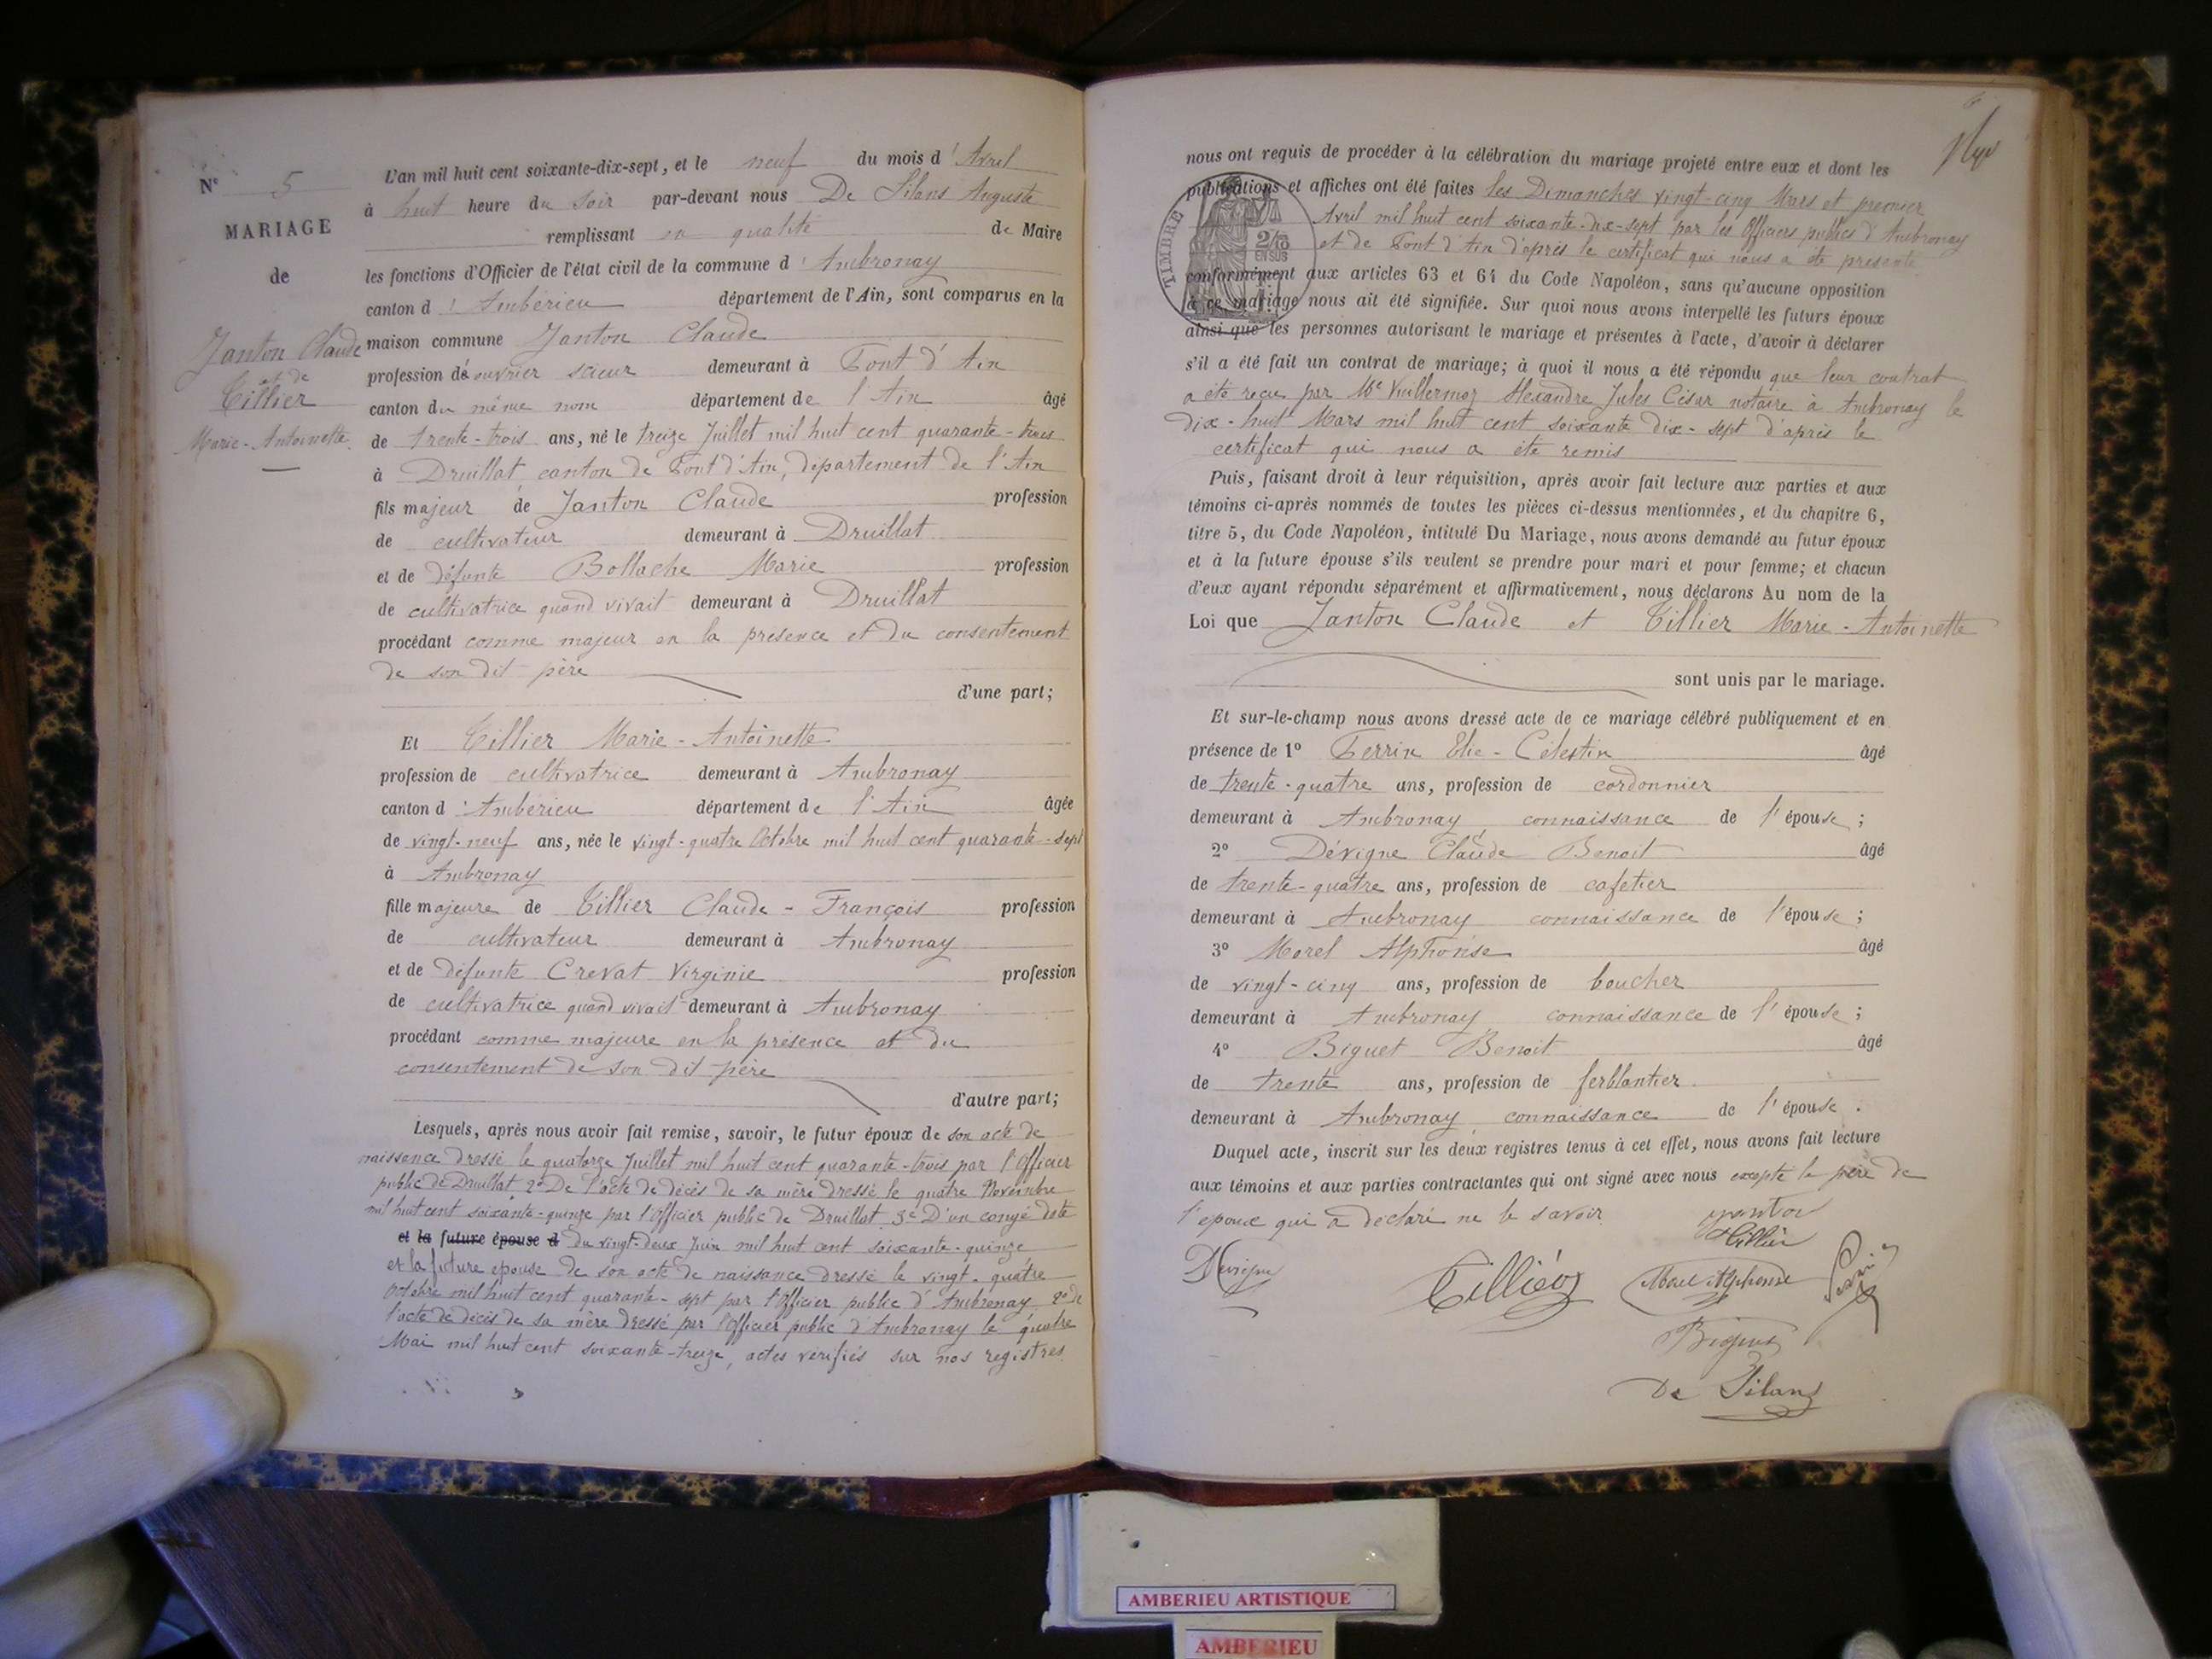 N° 5
MARIAGE
de
Janton Claude
et de
Tillier
Marie-Antoinette
L'an mil huit cent soixante-dix-sept, et le neuf du mois d'Avril
à huit heure du soir par-devant nous De Silans Auguste
remplissant en qualité de Maire
les fonctions d'Officier de l'état civil de la commune d'Ambronay
canton d'Ambérieu département de l'Ain, sont comparus en la
maison commune Janton Claude
profession d'ouvrier scieur demeurant à Pont d'Ain
canton du même nom département de l'Ain âgé
de trente-trois ans, né le treize Juillet mil huit cent quarante-trois
à Druillat canton de Pont d'Ain, département de l'Ain
fils majeur de Janton Claude profession
de cultivateur demeurant à Druillat
et de défunte Bollache Marie profession
de cultivatrice quand vivait demeurant à Druillat
procédant comme majeur en la présence et du consentement
de son dit père
d'une part;
Et Tillier Marie-Antoinette
profession de cultivatrice demeurant à Ambronay
canton d'Ambérieu département de l'Ain âgée
de vingt-neuf ans, née le vingt-quatre Octobre mil huit cent quarante-sept
à Ambronay
fille majeure de Tillier Claude-François profession
de cultivateur demeurant à Ambronay
et de défunte Crevat Virginie profession
de cultivatrice quand vivait demeurant à Ambronay
procédant comme majeure en la présence et du
consentement de son dit père
d'autre part;
Lesquels, après nous avoir fait remise, savoir, le futur époux de son acte de
naissance dressé le quatorze Juillet mil huit cent quarante-trois par l'Officier
public de Druillat 2° De l'acte de décès de sa mère dressé le quatre Novembre
mil huit cent soixante-quinze par l'Officier public de Druillat 3° D'un congé daté
et la future épouse d du vingt-deux Juin mil huit cent soixante-quinze
et la future épouse de son acte de naissance dressé le vingt-quatre
Octobre mil huit cent quarante-sept par l'Officier public d'Ambronay 2° de
l'acte de décès de sa mère dressé par l'Officier public d'Ambronay le quatre
Mai mil huit cent soixante-treize, actes vérifiés sur nos registres
6
nous ont requis de procéder à la célébration du mariage projeté entre eux et dont les
publications et affiches ont été faites les Dimanches vingt-cinq Mars et premier
Avril mil huit cent soixante-dix-sept par les Officiers publics d'Ambronay
et de Pont d'Ain d'après le certificat qui nous a été présenté
TIMBRE
2/10
EN SUS
conformément aux articles 63 et 64 du Code Napoléon, sans qu'aucune opposition
à ce mariage nous ait été signifiée. Sur quoi nous avons interpellé les futurs époux
ainsi que les personnes autorisant le mariage et présentes à l'acte, d'avoir à déclarer
s'il a été fait un contrat de mariage; à quoi il nous a été répondu que leur contrat
a été reçu par Me Vuillermoz Alexandre Jules César notaire à Ambronay le
dix-huit Mars mil huit cent soixante dix-sept d'après le
certificat qui nous a été remis
Puis, faisant droit à leur réquisition, après avoir fait lecture aux parties et aux
témoins ci-après nommés de toutes les pièces ci-dessus mentionnées, et du chapitre 6,
titre 5, du Code Napoléon, intitulé Du Mariage, nous avons demandé au futur époux
et à la future épouse s'ils veulent se prendre pour mari et pour femme; et chacun
d'eux ayant répondu séparément et affirmativement, nous déclarons Au nom de la
Loi que Janton Claude et Tillier Marie-Antoinette
sont unis par le mariage.
Et sur-le-champ nous avons dressé acte de ce mariage célébré publiquement et en
présence de 1° Perrin Elie-Célestin âgé
de trente-quatre ans, profession de cordonnier
demeurant à Ambronay connaissance de l'épouse;
2° Dévigne Claude Benoit âgé
de trente-quatre ans, profession de cafetier
demeurant à Ambronay connaissance de l'épouse;
3° Morel Alphonse âgé
de vingt-cinq ans, profession de boucher
demeurant à Ambronay connaissance de l'épouse;
4° Biguet Benoit âgé
de trente ans, profession de ferblantier
demeurant à Ambronay connaissance de l'épouse.
Duquel acte, inscrit sur les deux registres tenus à cet effet, nous avons fait lecture
aux témoins et aux parties contractantes qui ont signé avec nous excepté le père de
l'époux qui a déclaré ne le savoir
janton
Tillier
Devigne
Tillier
Morel Alphonse
Perrin
Biguet
De Silans
AMBERIEU ARTISTIQUE
AMBERIEU